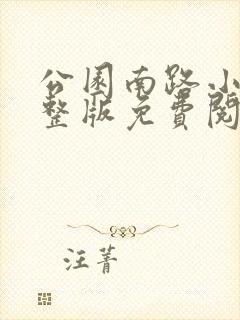 公园南路小
整版免费阅
汪菁